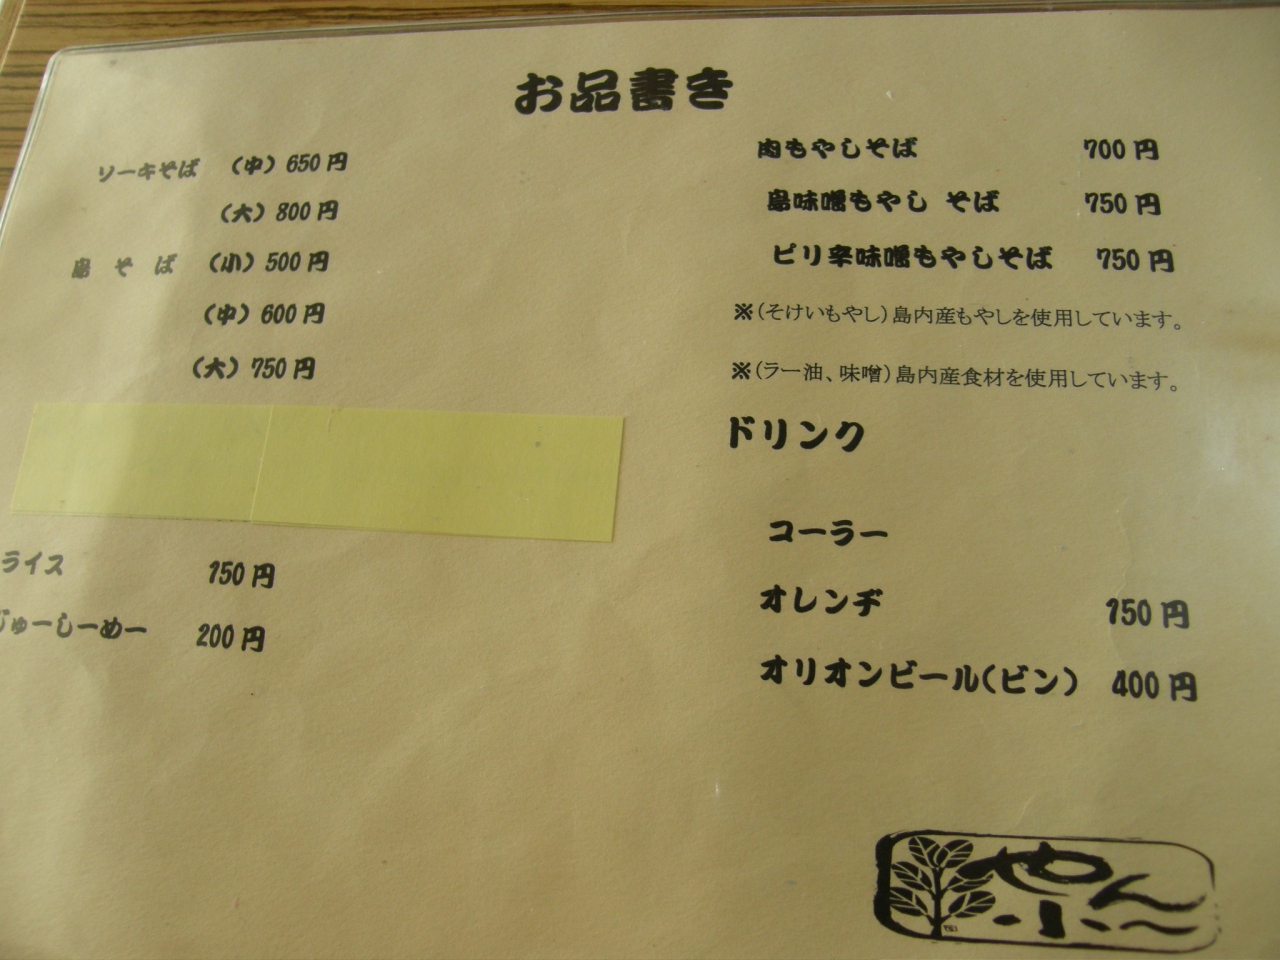 お品書き
ソーキそば （中）650円
（大）800円
島そば （小）500円
（中）600円
（大）750円
ライス 150円
じゅーしーめー 200円
肉もやしそば 700円
島味噌もやし そば 750円
ピリ辛味噌もやしそば 750円
※（そけいもやし）島内産もやしを使用しています。
※（ラー油、味噌）島内産食材を使用しています。
ドリンク
コーラー
オレンヂ 150円
オリオンビール（ビン） 400円
やん小～